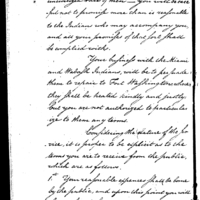 but not to promise more than is reasonable
to the Indians who may accompany you,
and all your promises of this sort shall
be complied with.
Your business with the Miami
and Wabash Indians, will be to persuade
them to repair to Fort Washington where
they shall be treated kindly and justly
but you are not authorized to particular
ize to them any terms.
Considering the nature of the ser
vice, it is proper to be explicit as to the
terms you are to receive from the public,
which are as follows.
1st Your reasonable expences shall be borne
by the public, and upon this point you will